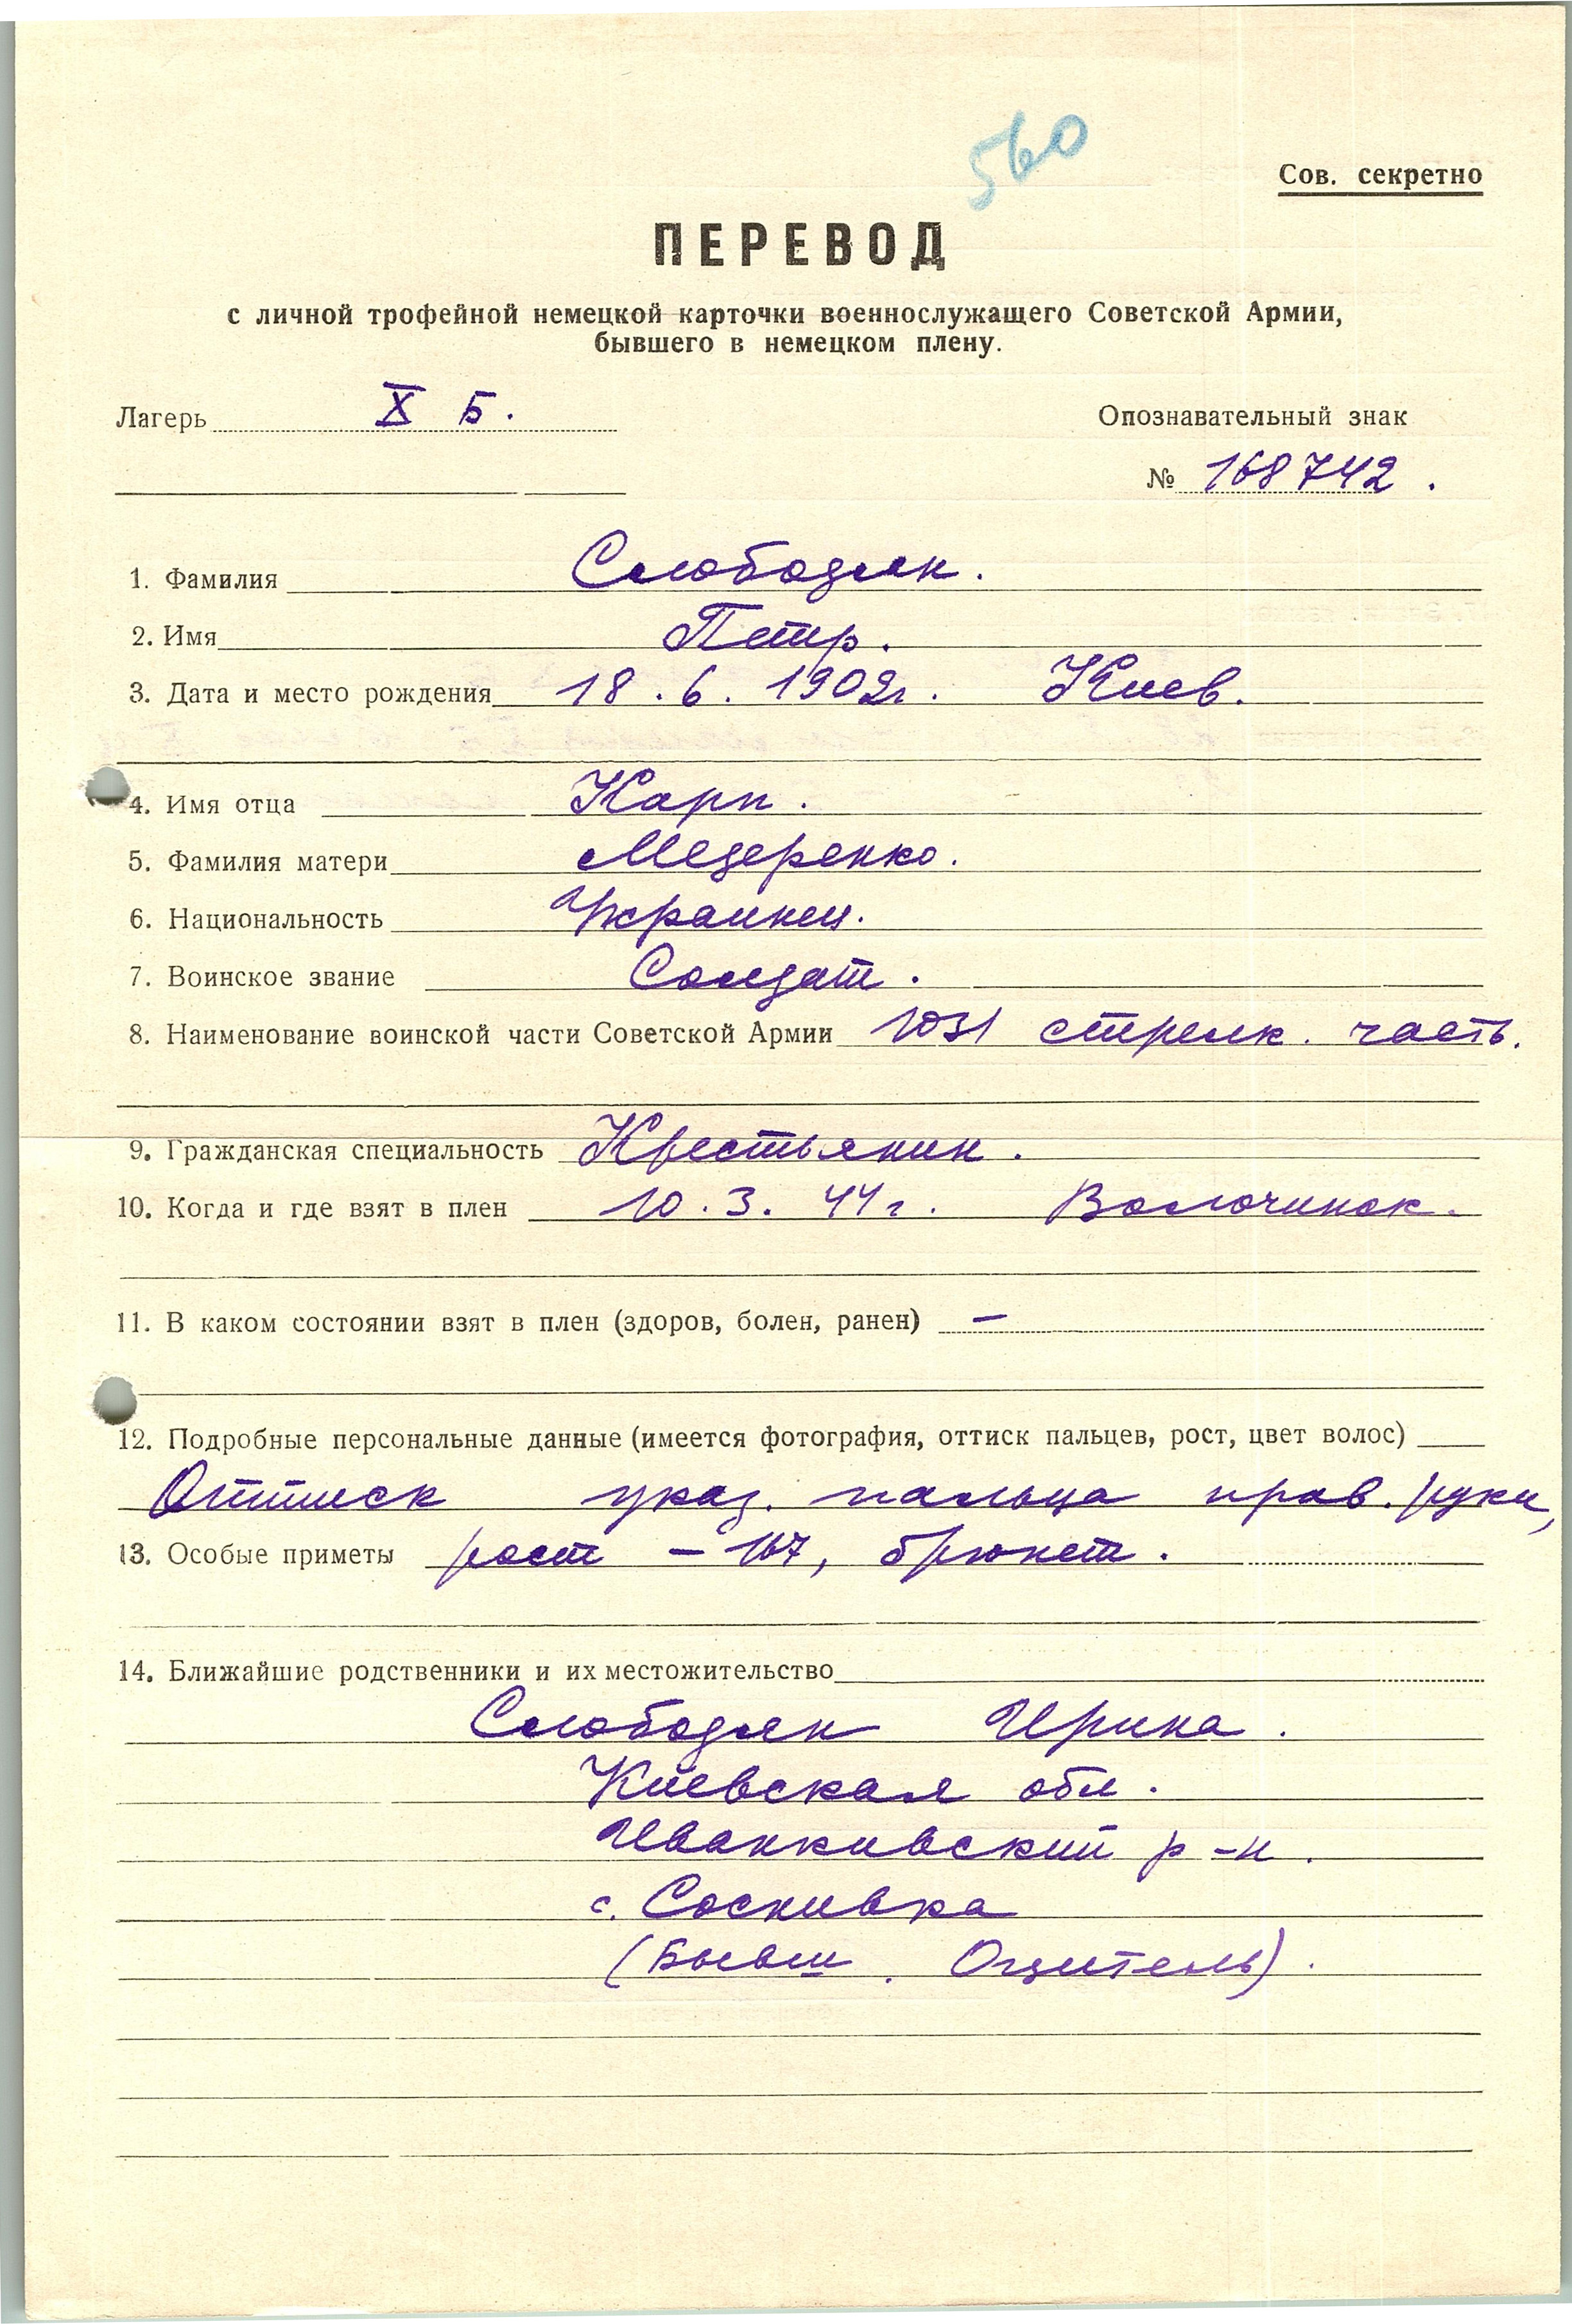 560
Сов. секретно
ПЕРЕВОД
с личной трофейной немецкой карточки военнослужащего Советской Армии,
бывшего в немецком плену.
Лагерь X Б.
Опознавательный знак
№ 168742.
1. Фамилия Слободян.
2. Имя Петр.
3. Дата и место рождения 18.6.1902г. Киев.
4. Имя отца Карп.
5. Фамилия матери Медеренко.
6. Национальность Украинец.
7. Воинское звание Солдат.
8. Наименование воинской части Советской Армии 1031 стрелк. часть.
9. Гражданская специальность Крестьянин.
10. Когда и где взят в плен 10.3.44г. Волочинок.
11. В каком состоянии взят в плен (здоров, болен, ранен) —
12. Подробные персональные данные (имеется фотография, оттиск пальцев, рост, цвет волос)
Оттиск указ. пальца прав. руки,
13. Особые приметы рост – 167, брюнет.
14. Ближайшие родственники и их местожительство
Слободян Ирина.
Киевская обл.
Иванкивский р-н.
с. Соснивка
(Бывш.